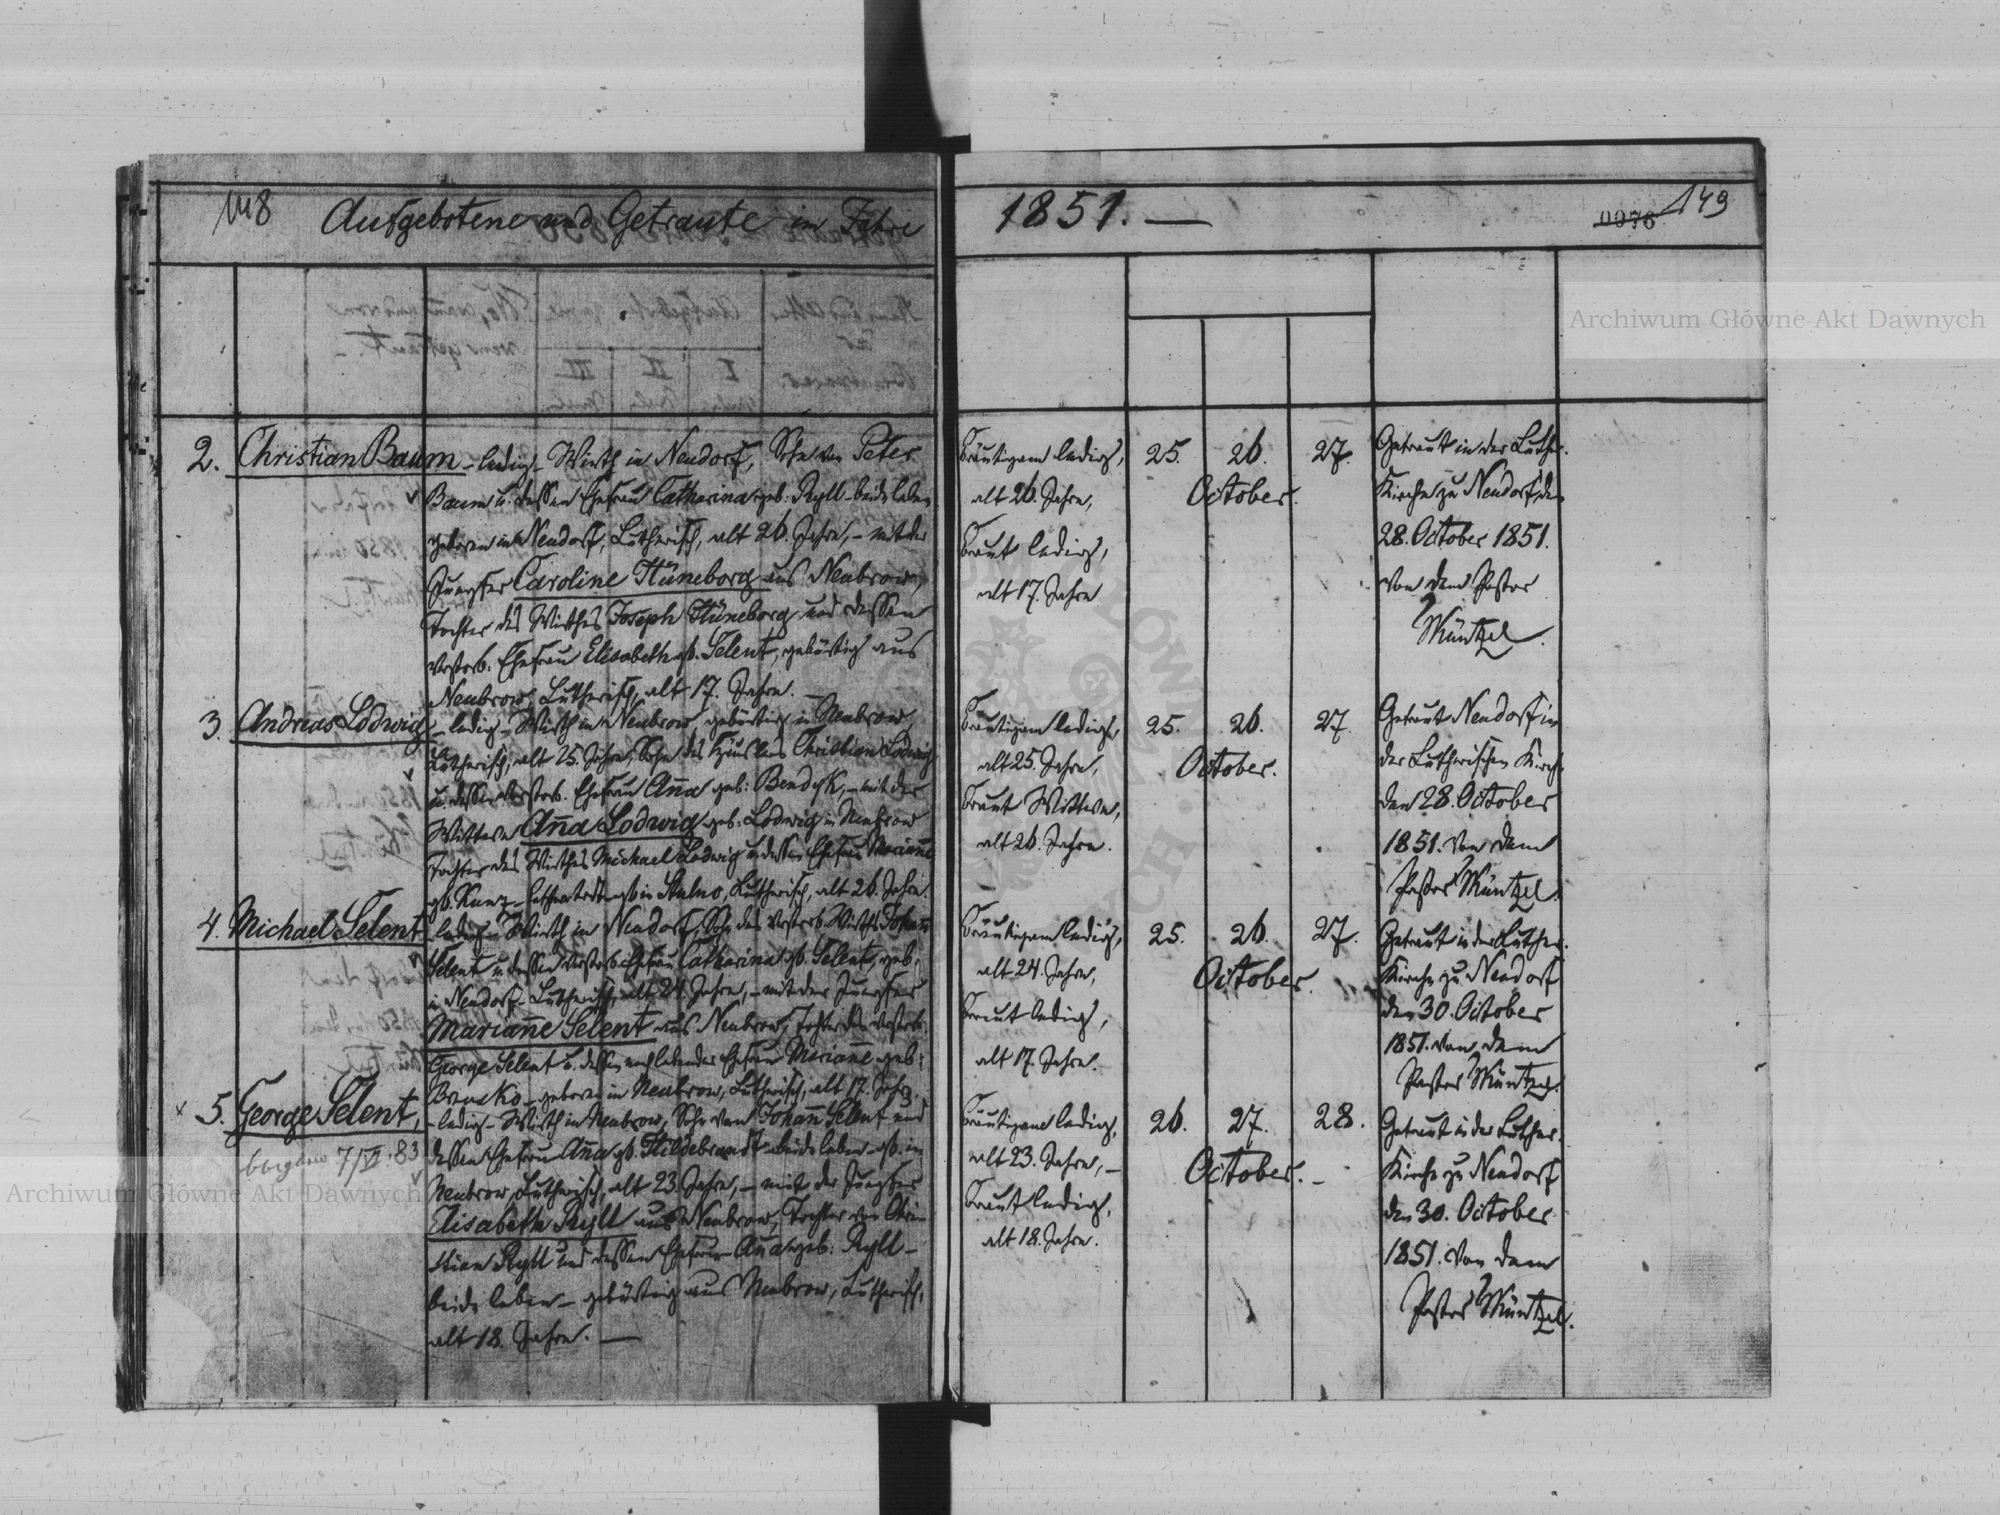 148 Aufgebotene und Getraute im Jahre
1851. —
0076 149
Archiwum Główne Akt Dawnych
2. Christian Baum - ledig - Wirth in Neudorf, Sohn von Peter
Baum u. dessen Ehefrau Catharina geb: Ryll - beide leben
geboren in Neudorf, Lutherisch, alt 26. Jahre, - mit der
Jungfer Caroline Hüneborg aus Neubrow,
Tochter des Wirthes Joseph Hüneborg und dessen
verstorb. Ehefrau Elisabeth gb. Selent, gebürtig aus
Neubrow, Lutherisch, alt 17. Jahre. -
Bräutigam ledig,
alt 26. Jahre,
Braut ledig,
alt 17. Jahre
25. 26. 27.
October.
Getraut in der Luther.
Kirche zu Neudorf, den
28. October 1851.
von dem Pastor
Müntzel.
3. Andreas Lodwig - ledig - Wirth in Neubrow gebürtig in Neubrow,
Lutherisch, alt 25. Jahre, Sohn des Christian Lodwig
u. dessen verstorb. Ehefrau Anna geb: Bendyk, - mit der
Wittwe Anna Lodwig geb: Lodwig in Neubrow
Tochter des Wirthes Michael Lodwig u. dessen Ehefrau Marianne
gb. Kunz - in Lutherisch, alt 26. Jahre.
Bräutigam ledig,
alt 25. Jahre,
Braut Wittwe,
alt 26. Jahre.
25. 26. 27.
October.
Getraut Neudorf in
der Lutherischen Kirche
den 28. October
1851. von dem
Pastor Müntzel.
4. Michael Selent - ledig - Wirth in Neudorf, Sohn des verstorb. Wirths Johann
Selent u. dessen verstorb. Ehefrau Catharina gb. Selent, geb.
in Neudorf - Lutherisch, alt 24. Jahre, - mit der Jungfer
Marianne Selent aus Neubrow, Tochter des verstorb.
George Selent u. dessen noch lebender Ehefrau Marianne geb:
geboren in Neubrow, Lutherisch, alt 17. Jahre.
Bräutigam ledig,
alt 24. Jahre,
Braut ledig,
alt 17. Jahre.
25. 26. 27.
October.
Getraut in der Luther.
Kirche zu Neudorf
den 30. October
1851. von dem
Pastor Müntzel.
x 5. George Selent, - ledig - Wirth in Neubrow, Sohn von Johann Selent und
7/VI 83
dessen Ehefrau Anna gb. Hildebrandt - beide leben - gb. in
Neubrow, Lutherisch, alt 23. Jahre, - mit der Jungfer
Elisabeth Ryll aus Neubrow, Tochter von Chri-
stian Ryll und dessen Ehefrau Anna geb: Ryll -
beide leben - gebürtig aus Neubrow, Lutherisch,
alt 18. Jahre. —
Bräutigam ledig,
alt 23. Jahre, -
Braut ledig,
alt 18. Jahre.
26. 27. 28.
October. -
Getraut in der Luther.
Kirche zu Neudorf
den 30. October
1851. von dem
Pastor Müntzel.
Archiwum Główne Akt Dawnych